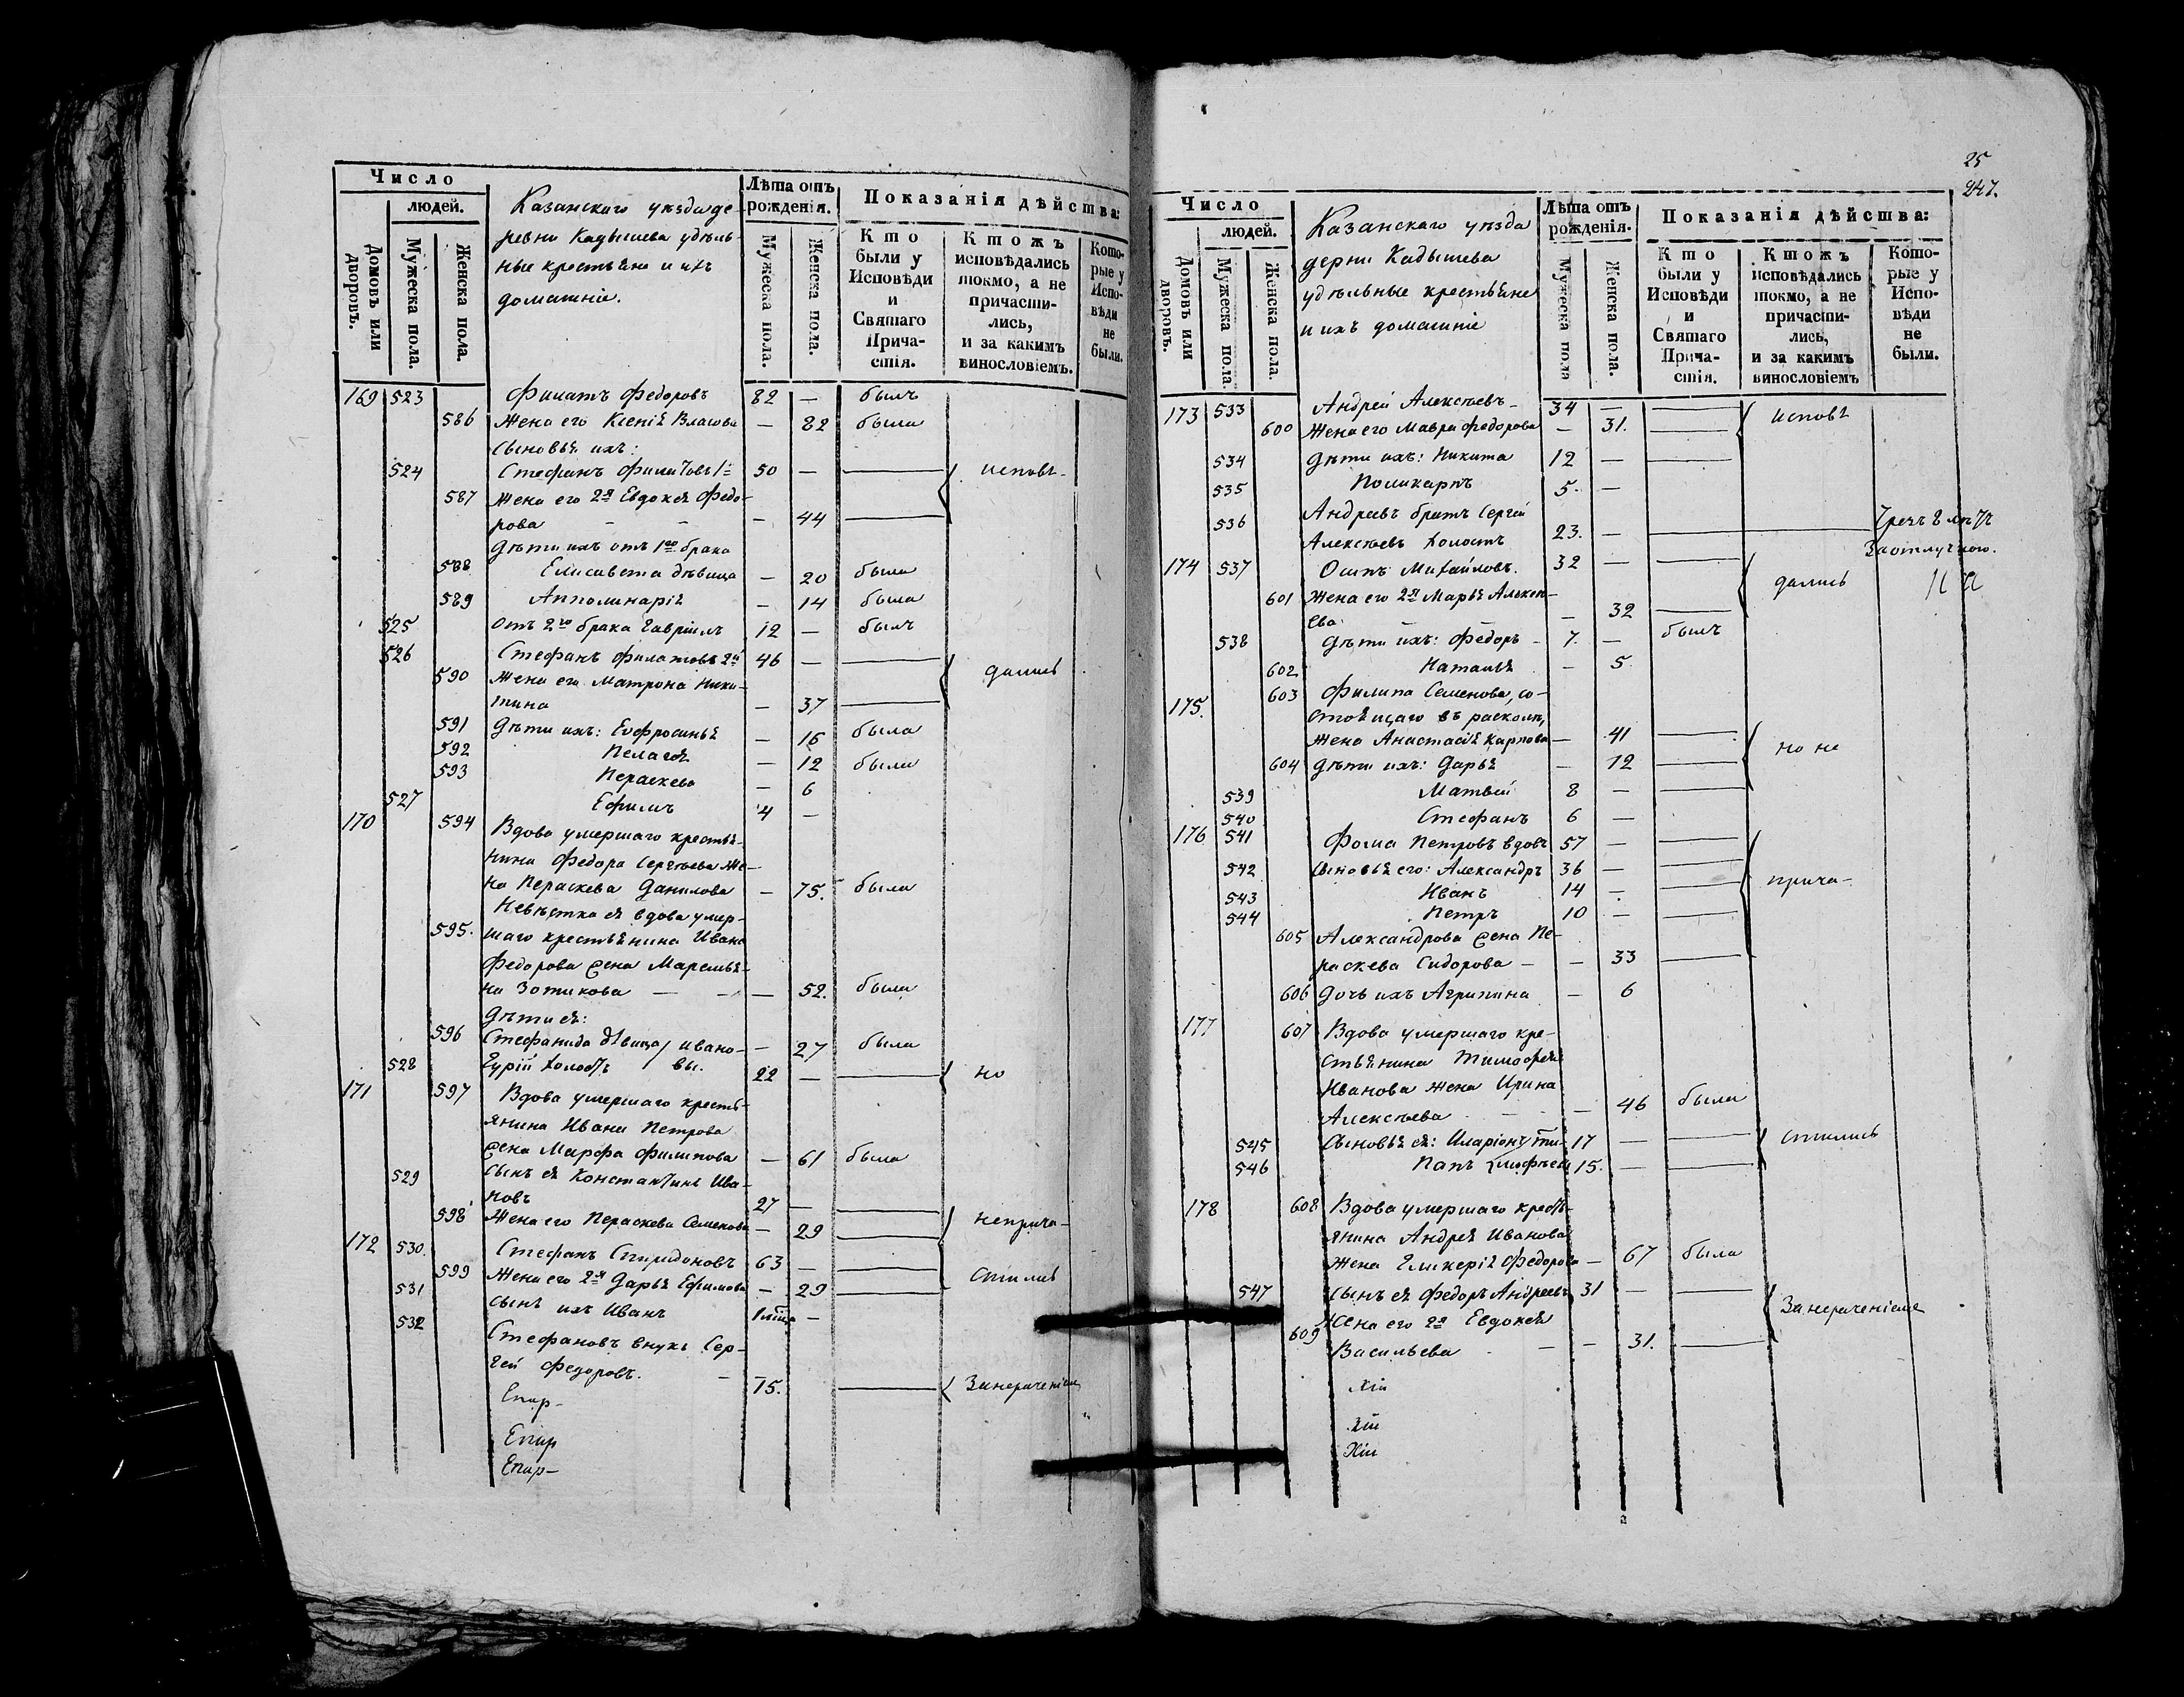 Число
людей.
Домовъ или дворовъ.
Мужеска пола.
Женска пола.
Казанского уѣзда де-
ревни Кадышева удѣль-
ные крестьяне и ихъ
домашніе.
Лѣта отъ рожденія.
Мужеска пола.
Женска пола.
Показанія дѣйства:
Кто были у Исповѣди и Святаго Прича-стія.
Ктожъ исповѣдались токмо, а не причасти-лись, и за какимъ винословіемъ.
Кото-рые у Испо-вѣди не были.
169 523 Филатъ Федоровъ 82 — былъ
586 Жена его Ксенія Власова — 82 была
Сыновья ихъ:
524 Стефанъ Филатовъ 1й 50 — — исповѣ-
587 Жена его 2я Евдокея Федо-
рова — 44 —
Дѣти ихъ отъ 1го брака
588 Елисавета дѣвица — 20 была
589 Апполинарія — 14 была
525 Отъ 2го брака Гавріилъ 12 — былъ
526 Стефанъ Филатовъ 2й 46 — — дались
590 Жена его Матрона Ники-
тина — 37 —
591 Дѣти ихъ: Евфросинья — 16 была
592 Пелагея — 12 была
593 Пераскева — 6
527 Ефимъ 4 —
170 594 Вдова умершаго крестья-
нина Федора Сергѣева же-
на Пераскева Данилова — 75. была
Невѣстка ея вдова умер-
595. шаго крестьянина Ивана
Федорова жена Маремья-
на Зотикова — 52. была
Дѣти ея:
596 Стефанида дѣвица / Ивано- — 27 была
528 Гурій холостъ / вы. 22 — — но
171 597 Вдова умершаго кресть-
янина Ивана Петрова
жена Марфа Филипова — 61 была
529 Сынъ ея Константинъ Ива-
новъ 27 — —
598 Жена его Пераскева Семенова — 29 — неприча-
172 530. Стефанъ Спиридоновъ 63 — —
599 Жена его 2я Дарья Ефимова — 29 — стились
531 Сынъ ихъ Иванъ —
532 Стефановъ внукъ Сер-
гей Федоровъ. 15. — За нераченіемъ
Епар-
Епар
Епар-
25
247.
Число
людей.
Домовъ или дворовъ.
Мужеска пола.
Женска пола.
Казанскаго уѣзда
дерни Кадышева
удѣльные крестьяне
и ихъ домашніе
Лѣта отъ рожденія.
Мужеска пола
Женска пола.
Показанія дѣйства:
Кто были у Исповѣди и Святаго Прича-стія.
Ктожъ исповѣдались токмо, а не причасти-лись, и за какимъ винословіемъ
Кото-рые у Испо-вѣди не были.
173 533 Андрей Алексѣевъ 34 — — исповѣ
600 Жена его Мавра Федорова — 31. —
534 Дѣти ихъ: Никита 12 — —
535 Поликарпъ 5. —
536 Андреевъ братъ Сергей
Алексѣевъ холостъ 23. — —
За отлучкою.
174 537 Осипъ Михайловъ. 32 — — дались
601 Жена его 2я Марья Алексѣ-
ева — 32 —
538 Дѣти ихъ: Федоръ 7. — былъ
602. Наталья — 5
175. 603 Филипа Семенова, со-
стоящаго въ расколѣ,
жена Анастасія Карпова — 41 — но не
604 Дѣти ихъ: Дарья — 12 —
539 Матвей 8 — —
540 Стефанъ 6 —
176 541 Фома Петровъ вдовъ 57 — —
542 Сыновья его: Александръ 36 — — прича-
543 Иванъ 14 — —
544 Петръ 10 — —
605 Александрова жена Пе-
раскева Сидорова — 33 —
606 Дочь ихъ Агрипина — 6
177 607 Вдова умершаго кре-
стьянина Тимофея
Иванова жена Ирина
Алексѣева — 46 была
545 Сыновья ея: Иларіонъ Ти- 17 — — стились
546 Папъ мофѣевы 15. — —
178 608 Вдова умершаго кресть-
янина Андрея Иванова
жена Гликерія Федорова — 67 была
547 Сынъ ея Федоръ Андреевъ 31 — — За нераченіемъ
609 Жена его 2я Евдокея
Васильева — 31. —
хіи
хіи
хіи